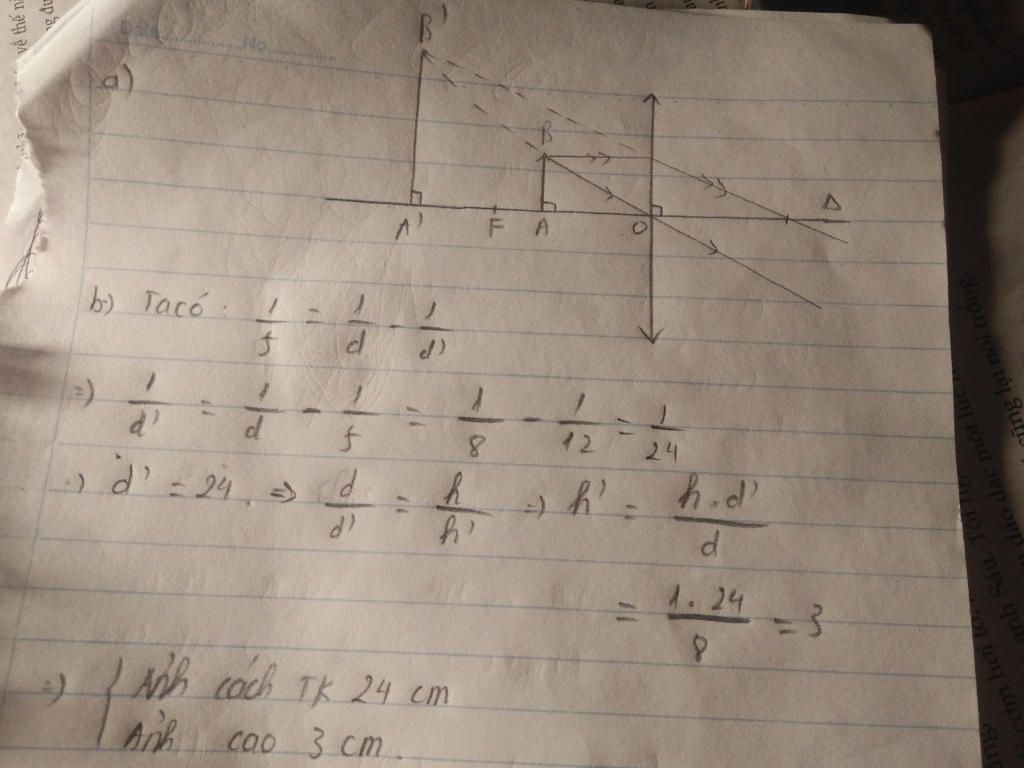 Date No
a)
B'
B
A' F A O Δ
b) Ta có: 1/f = 1/d - 1/d'
=) 1/d' = 1/d - 1/f = 1/8 - 1/12 = 1/24
=) d' = 24. => d/d' = h/h' =) h' = h.d'/d
= 1.24/8 = 3
=) { Ảnh cách TK 24 cm
Ảnh cao 3 cm.